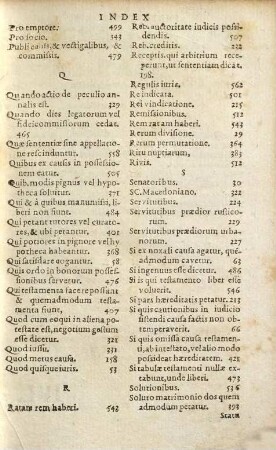 INDEX
Pro emptore. 499
Pro socio. 143
Publicanis, & vectigalibus, &
commissis. 477
Q
Quando actio de peculio an-
nalis est. 329
Quando dies legatorum vel
fideicommissorum cedat.
465
Quæ sententiæ sine appellatio-
ne rescindantur. 558
Quibus ex causis in possessio-
nem eatur. 505
Quib. modis pignus vel hypo-
theca soluitur. 321
Qui & à quibus manumissi, li-
beri non fiunt. 484
Qui petant tutores vel curato-
res, & vbi petantur. 401
Qui potiores in pignore vel hy
potheca habeantur. 318
Qui satisdare cogantur. 58
Quis ordo in honorum posses-
sionibus seruetur. 476
Qui testamenta facere possunt
& quemadmodum testa-
menta fiunt. 406
Quod cum eo qui in aliena po-
testate est, negotium gestum
esse dicetur. 323
Quod iussu. 331
Quod metus causa. 158
Quod quisque iuris. 53
R
Ratam rem haberi. 543
Reb. auctoritate iudicis possi-
dendis. 507
Reb. creditis. 222
Receptis, qui arbitrium recepe-
runt, ut sententiam dicat.
198.
Regulis iuris, 562
Rei iudicata. 501
Rei vindicatione. 215
Remissionibus. 512
Rem ratam haberi. 543
Rerum diuisione. 29
Rerum permutatione. 364
Ritu nuptiarum, 382
Riuis. 522
S
Senatoribus. 30
SC. Macedoniano. 322
Seruitutibus. 214
Seruitutibus prædior rustico-
rum. 219
Seruitutibus prædiorum urba-
norum. 227
Si ex noxali causa agatur, que-
admodum cavetur. 63
Si ingenuus esse dicetur. 486
Si is qui testamento liber esse
voluerit. 531
Si pars hæreditatis petatur. 213
Si quis cautionibus in iudicio
sistendi causa factis non ob-
temperauerit. 65
Si quis omissa causa testamen-
ti, ab intestato, vel alio modo
possideat hæreditatem. 430
Si tabulæ testamenti nullæ ex-
tabunt, unde liberi. 473
Solutionibus. 536
Soluto matrimonio dos quem
admodum petatur. 393
Statu